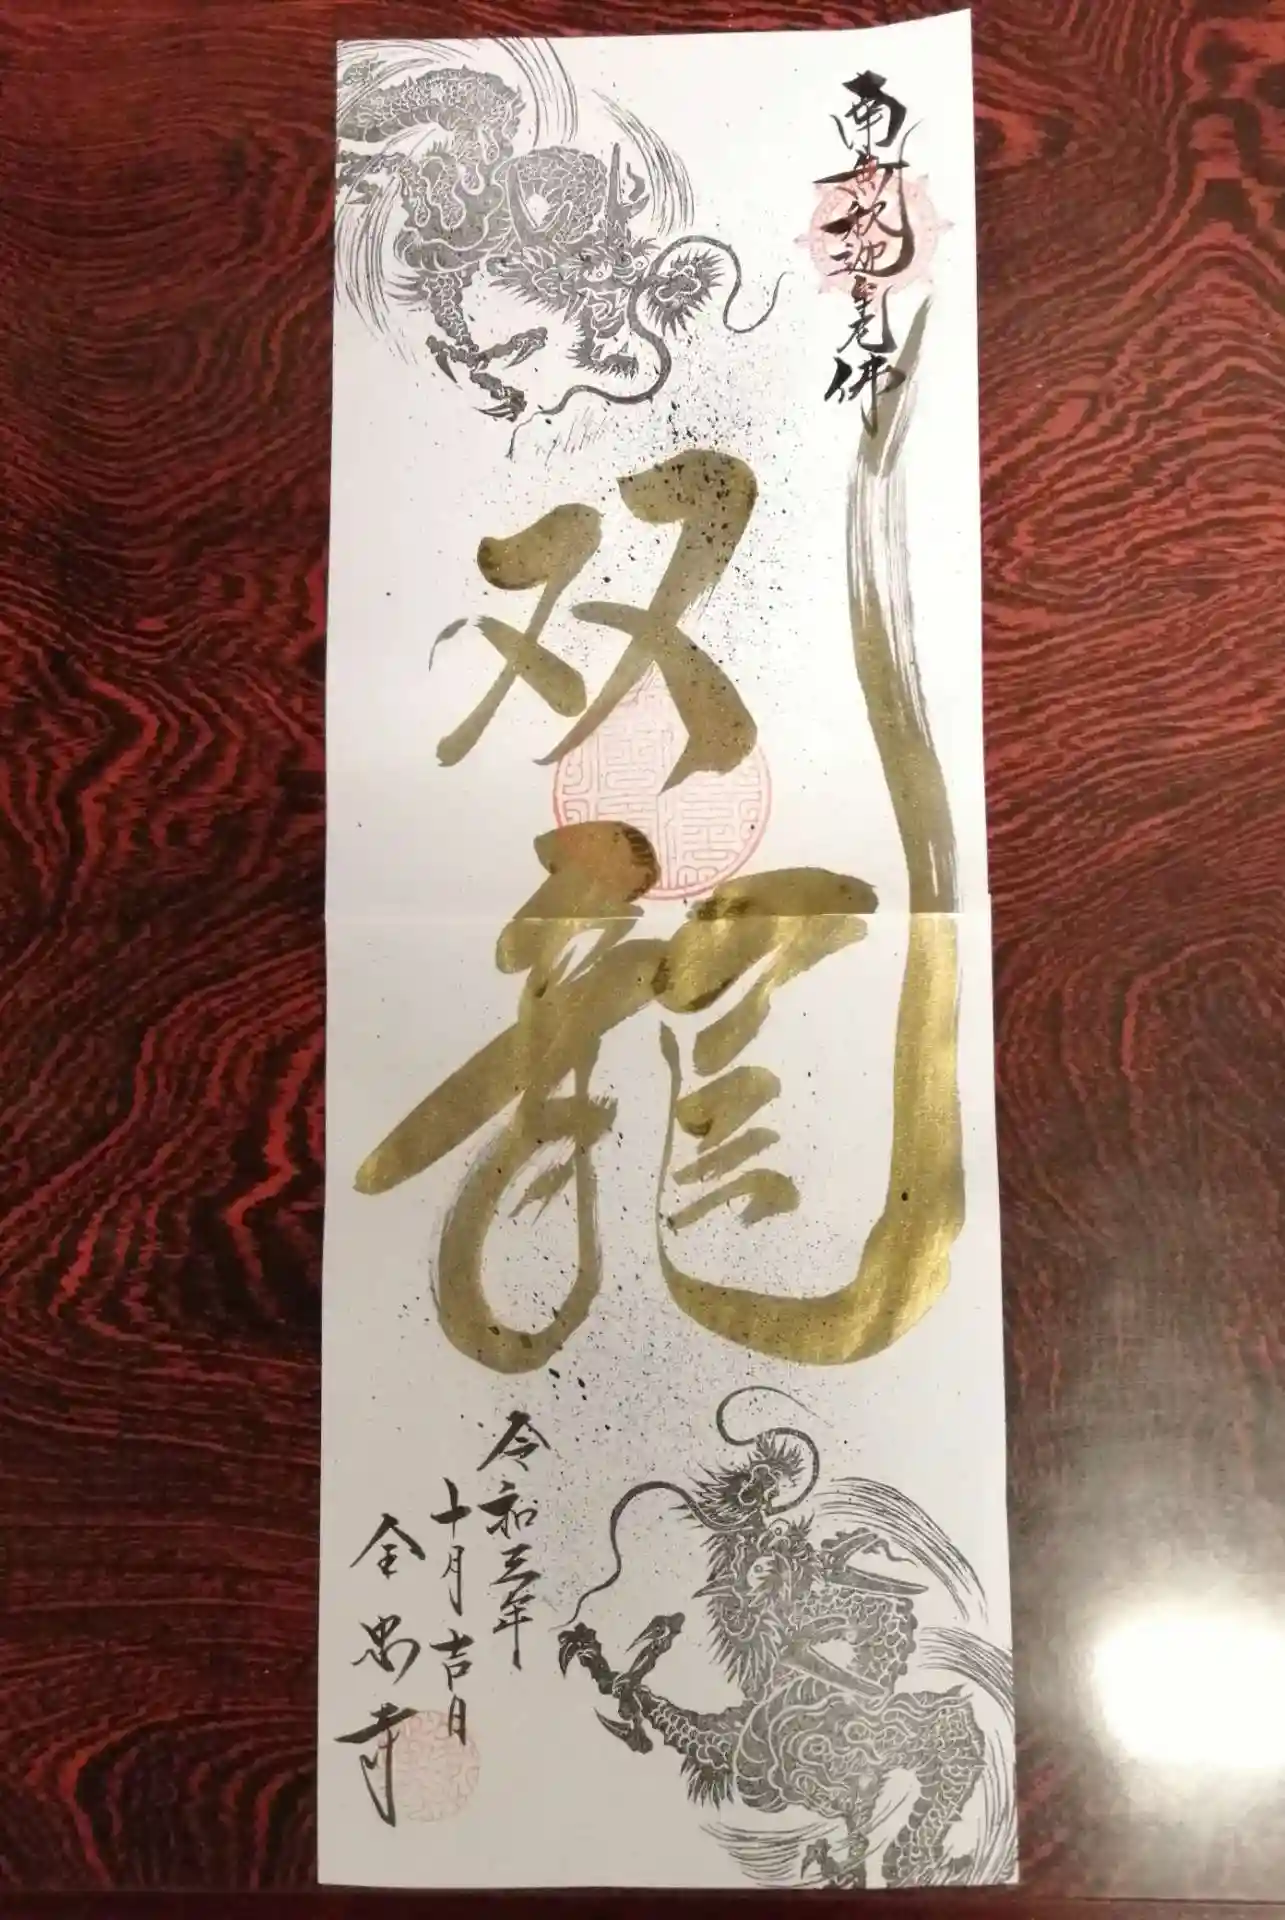 南無釈迦牟尼佛
双龍
令和三年
十月吉日
全忠寺